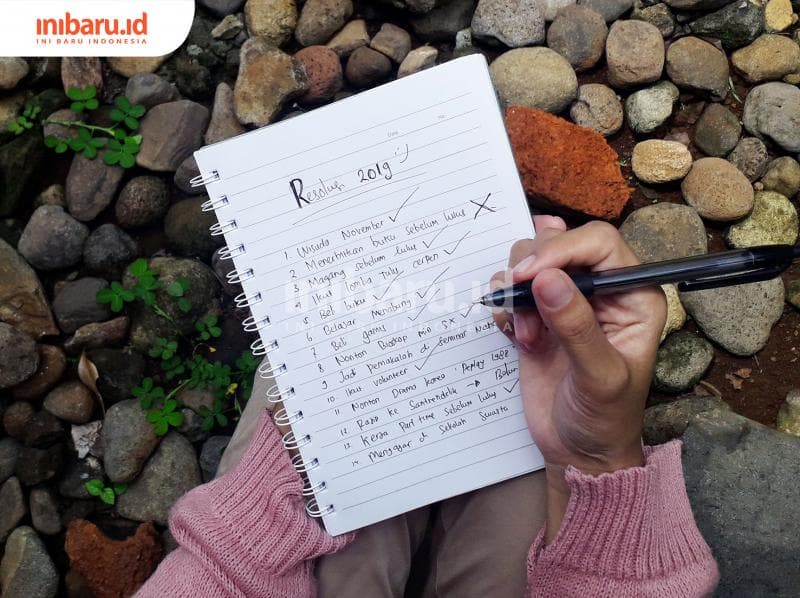 inibaru.id
INI BARU INDONESIA
Resolusi 2019 :)
1. Wisuda November ✓
2. Menerbitkan buku sebelum lulus X
3. Magang sebelum lulus ✓
4. Ikut lomba tulis cerpen ✓
5. Beli buku
6. Belajar Menabung
7. Beli gamis ✓
8. Nonton Bioskop min 5X ✓
9. Jadi Pemakalah di Seminar
10. Ikut volunteer ✓
11. Nonton Drama Korea: Replay 1988
12. Kerja Part time sebelum lulus ✓
14. Mengajar di Sekolah Swasta
inibaru.id
INI BARU INDONESIA